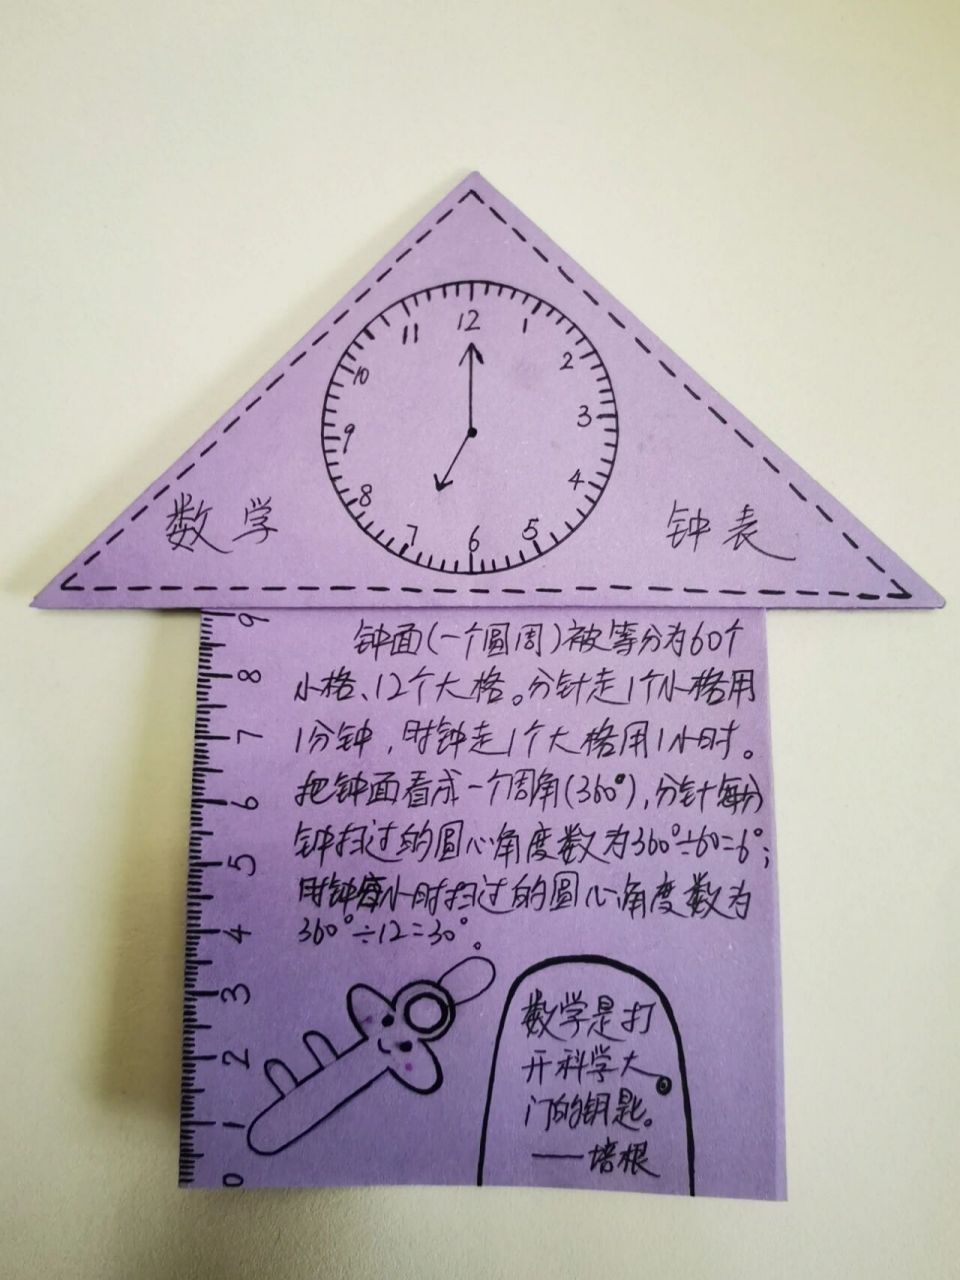 12
11 1
10 2
9 3
8 4
7 5
6
数学 钟表
钟面(一个圆周)被等分为60个
小格、12个大格。分针走1个小格用
1分钟，时钟走1个大格用1小时。
把钟面看成一个周角(360°),分针每分
钟扫过的圆心角度数为360°÷60=6°;
时钟每小时扫过的圆心角度数为
360°÷12=30°。
9
8
7
6
5
4
3
2
1
0
数学是打
开科学大
门的钥匙。
——培根